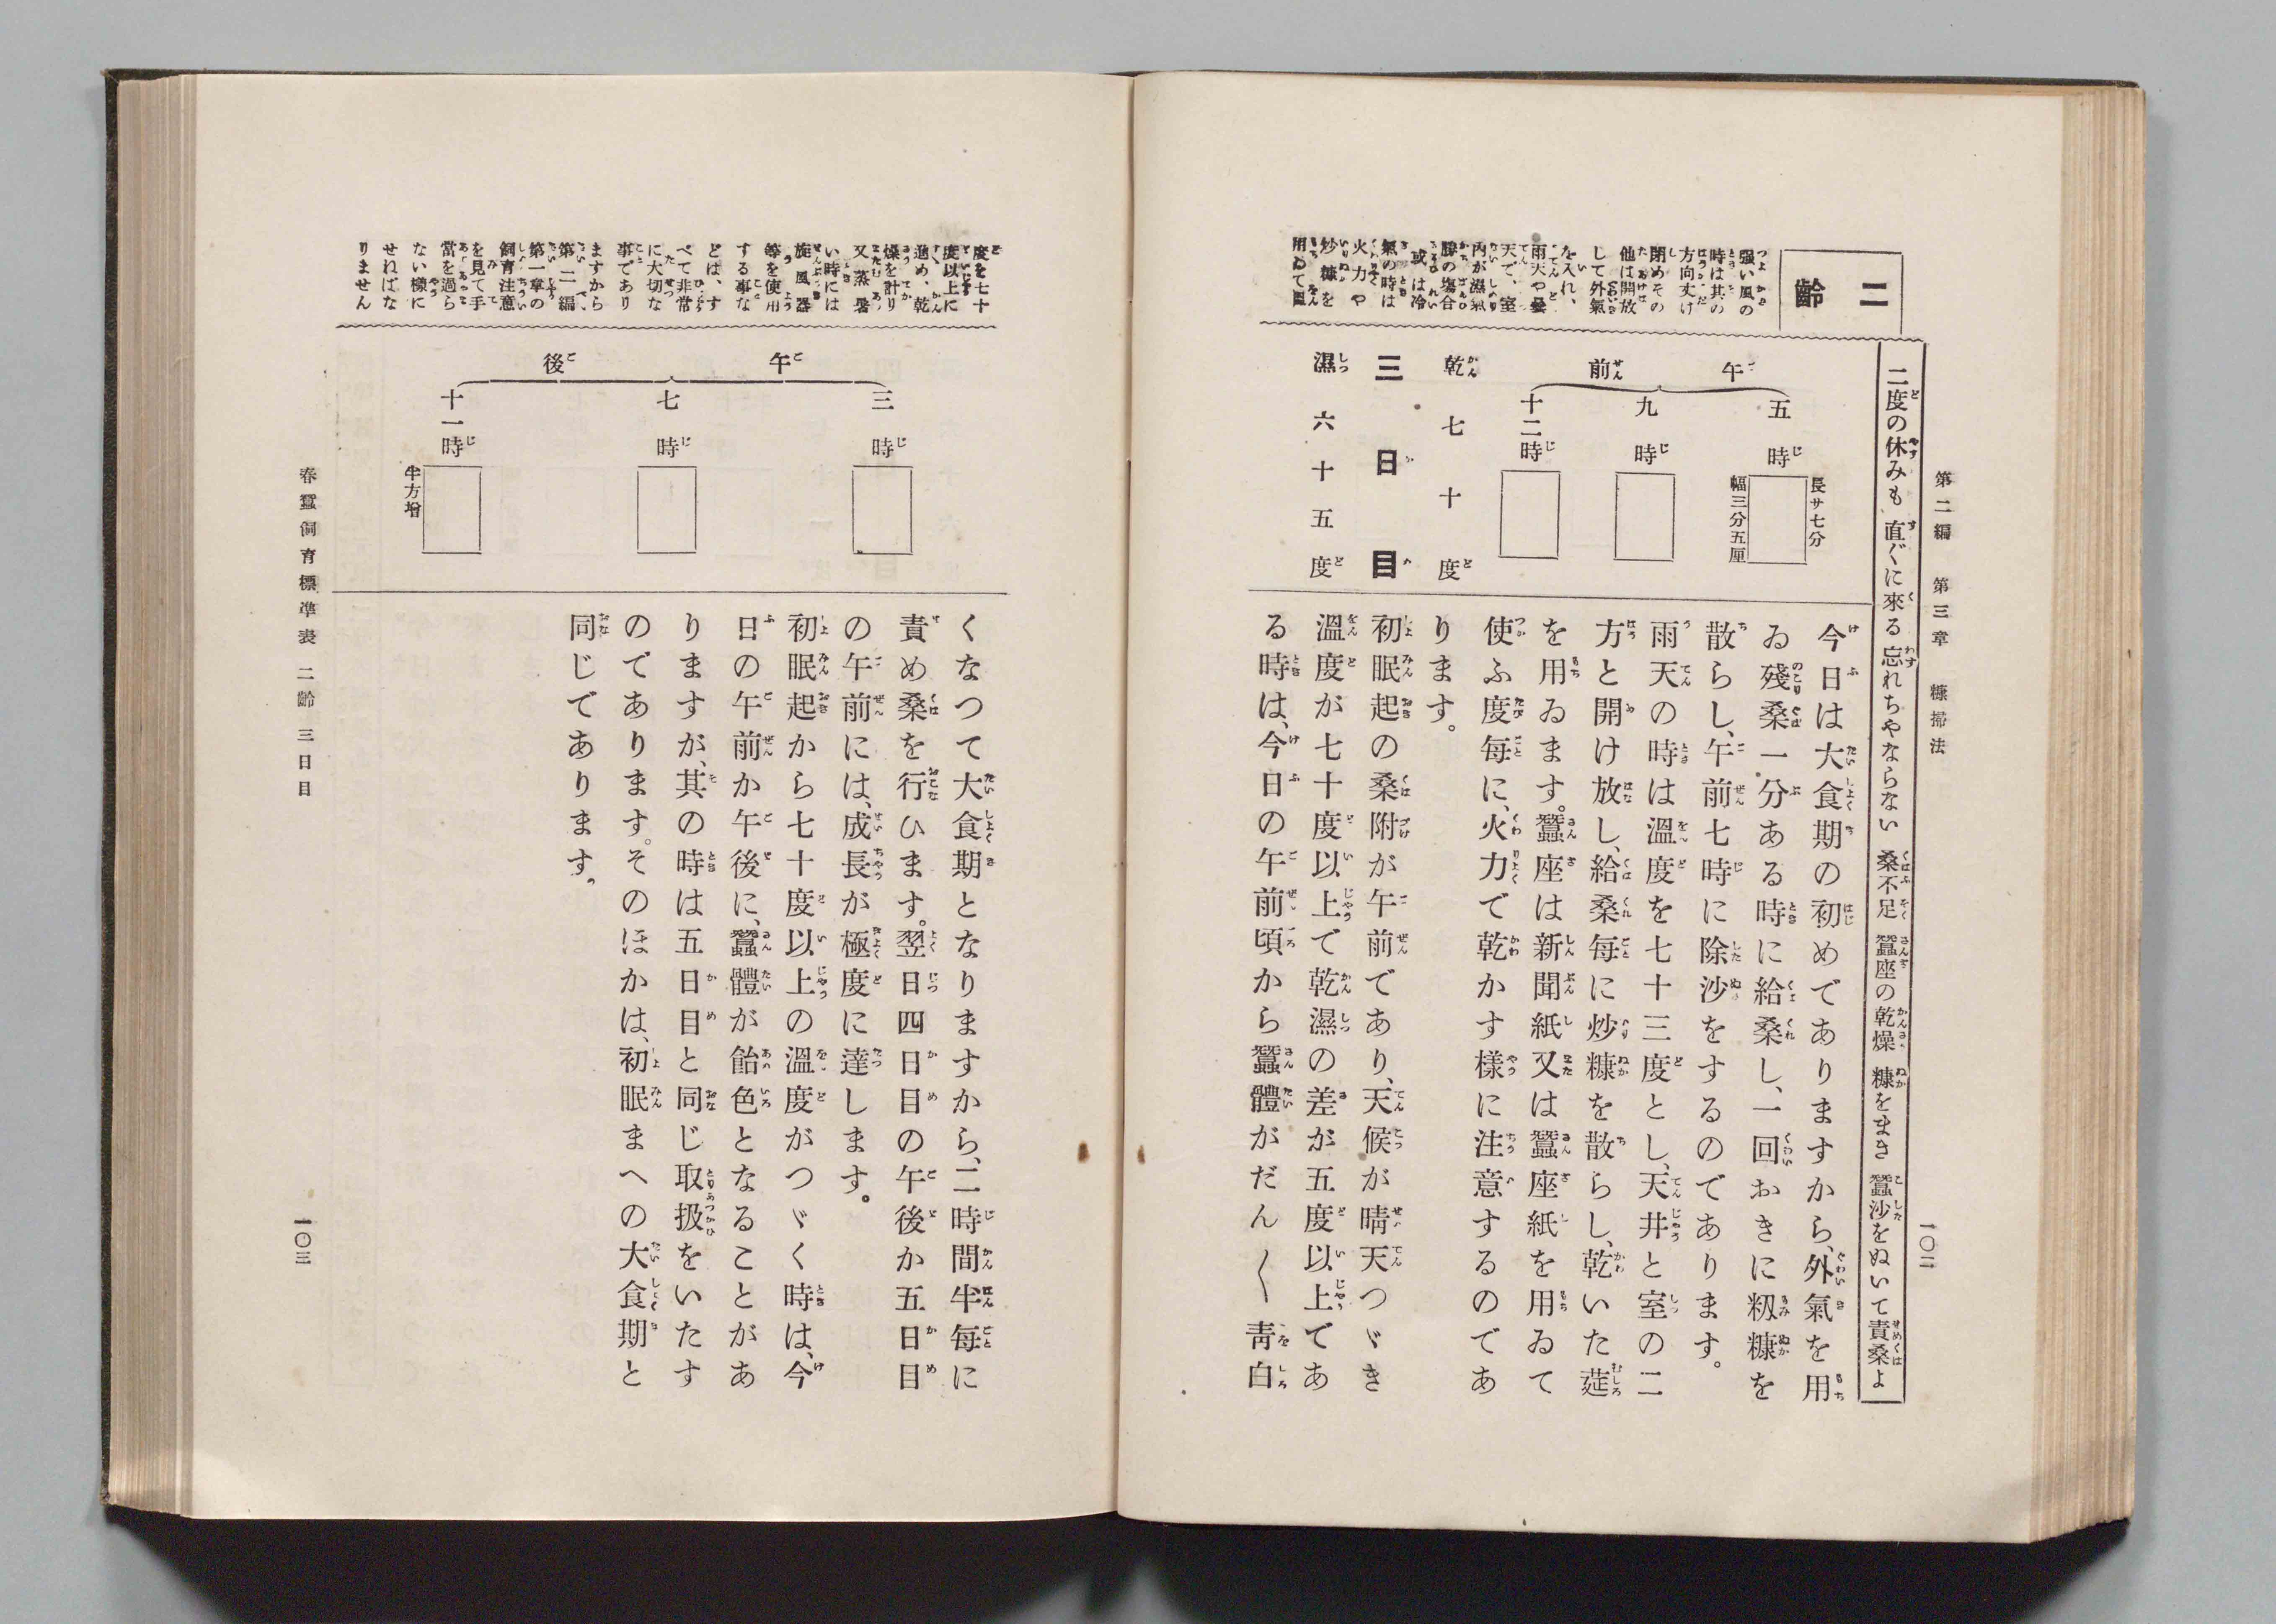 第二編　第三章　糠掃法
一〇二
二度の休みも　直ぐに來る　忘れちやならない　桑不足　蠶座の乾燥　糠をまき　蠶沙をぬいて責桑よ
二齡
强い風の
時は其の
方向丈け
閉めその
他は開放
して外氣
を入れ、
雨天や曇
天で、室
內が濕氣
勝の場合
或は冷
氣の時は
火力や
炒糠を
用ゐて溫
午前
五時
長サ七分
幅三分五厘
九時
十二時
乾七十度
三日目
濕六十五度
今日は大食期の初めでありますから、外氣を用
ゐ殘桑一分ある時に給桑し、一回おきに籾糠を
散らし、午前七時に除沙をするのであります。
雨天の時は溫度を七十三度とし、天井と室の二
方と開け放し、給桑每に炒糠を散らし、乾いた莚
を用ゐます。蠶座は新聞紙又は蠶座紙を用ゐて
使ふ度每に、火力で乾かす樣に注意するのであ
ります。
初眠起の桑附が午前であり、天候が晴天つゞき
溫度が七十度以上で乾濕の差が五度以上であ
る時は、今日の午前頃から蠶體がだん〱靑白
度を七十
度以上に
進め、乾
燥を計り
又蒸暑
い時には
旋風器
等を使用
する事な
どは、す
べて非常
に大切な
事であり
ますから
第二編
第一章の
飼育注意
を見て手
當を過ら
ない樣に
せねばな
りません
午後
三時
七時
十一時
半方增
くなつて大食期となりますから、二時間半每に
責め桑を行ひます。翌日四日目の午後か五日目
の午前には、成長が極度に達します。
初眠起から七十度以上の溫度がつゞく時は、今
日の午前か午後に、蠶體が飴色となることがあ
りますが、其の時は五日目と同じ取扱をいたす
のであります。そのほかは、初眠まへの大食期と
同じであります。
春蠶飼育標準表　二齡　三日目
一〇三